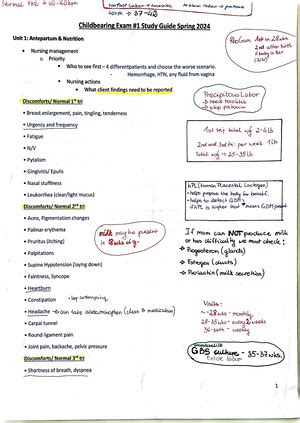 Normal FHR → 110-160 bpm
term → 37-42
Childbearing Exam #1 Study Guide Spring 2024
Unit 1: Antepartum & Nutrition
• Nursing management
o Priority
• Who to see first – 4 different patients and choose the worse scenario.
Hemorrhage, HTN, any fluid from vagina
• Nursing actions
• What client findings need to be reported
Discomforts/ Normal 1st tri
• Breast enlargement, pain, tingling, tenderness
• Urgency and frequency
• Fatigue
• N/V
• Ptyalism
• Gingivitis/ Epulis
• Nasal stuffiness
• Leukorrhea (clear/light mucus)
Discomforts/ Normal 2nd tri
• Acne, Pigmentation changes
• Palmar erythema
• Pruritus (itching)
• Palpitations
• Supine Hypotension (laying down)
• Faintness, Syncope
• Heartburn
• Constipation
• Headache → can take acetaminophen
• Carpal tunnel
• Round ligament pain
• Joint pain, backache, pelvic pressure
Discomforts/ Normal 3rd tri
• Shortness of breath, dyspnea
RhoGam 1st in 28wks
2nd after birth
Precipitous Labor
→ need tocolitic
→ stop
1st tri total wg 2-4lb
2nd and 3rd tri: per week 1lb
Total wg → 25-35lb
hPL (Human Placental Lactogen)
- helps prepare the body for breastf.
- helps to detect GDM
milk may be present
If mom can NOT produce milk
or has difficulty we must check:
→ Progesteron (glands)
→ Estrogen (ducts)
→ Prolactin (milk secretion)
Visits:
~-28wks - monthly
28-35wks - every 2 weeks
36-birth - weekly
GBS culture - 35-37wks.
1